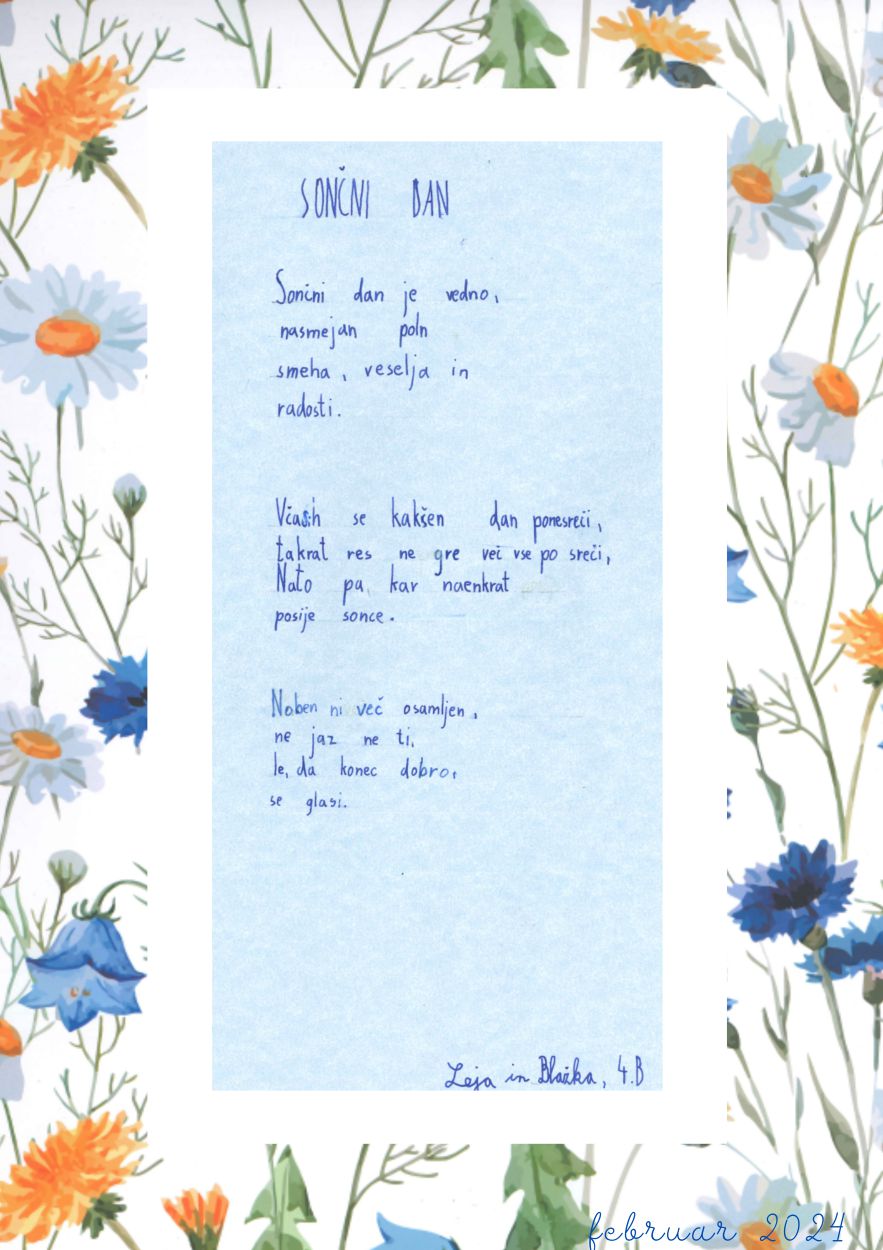 SONČNI DAN
Sončni dan je vedno,
nasmejan poln
smeha, veselja in
radosti.
Včasih se kakšen dan ponesreči,
takrat res ne gre več vse po sreči,
Nato pa kar naenkrat
posije sonce.
Noben ni več osamljen,
ne jaz ne ti,
le, da konec dobro,
se glasi.
Leja in Blažka, 4.B
februar 2024